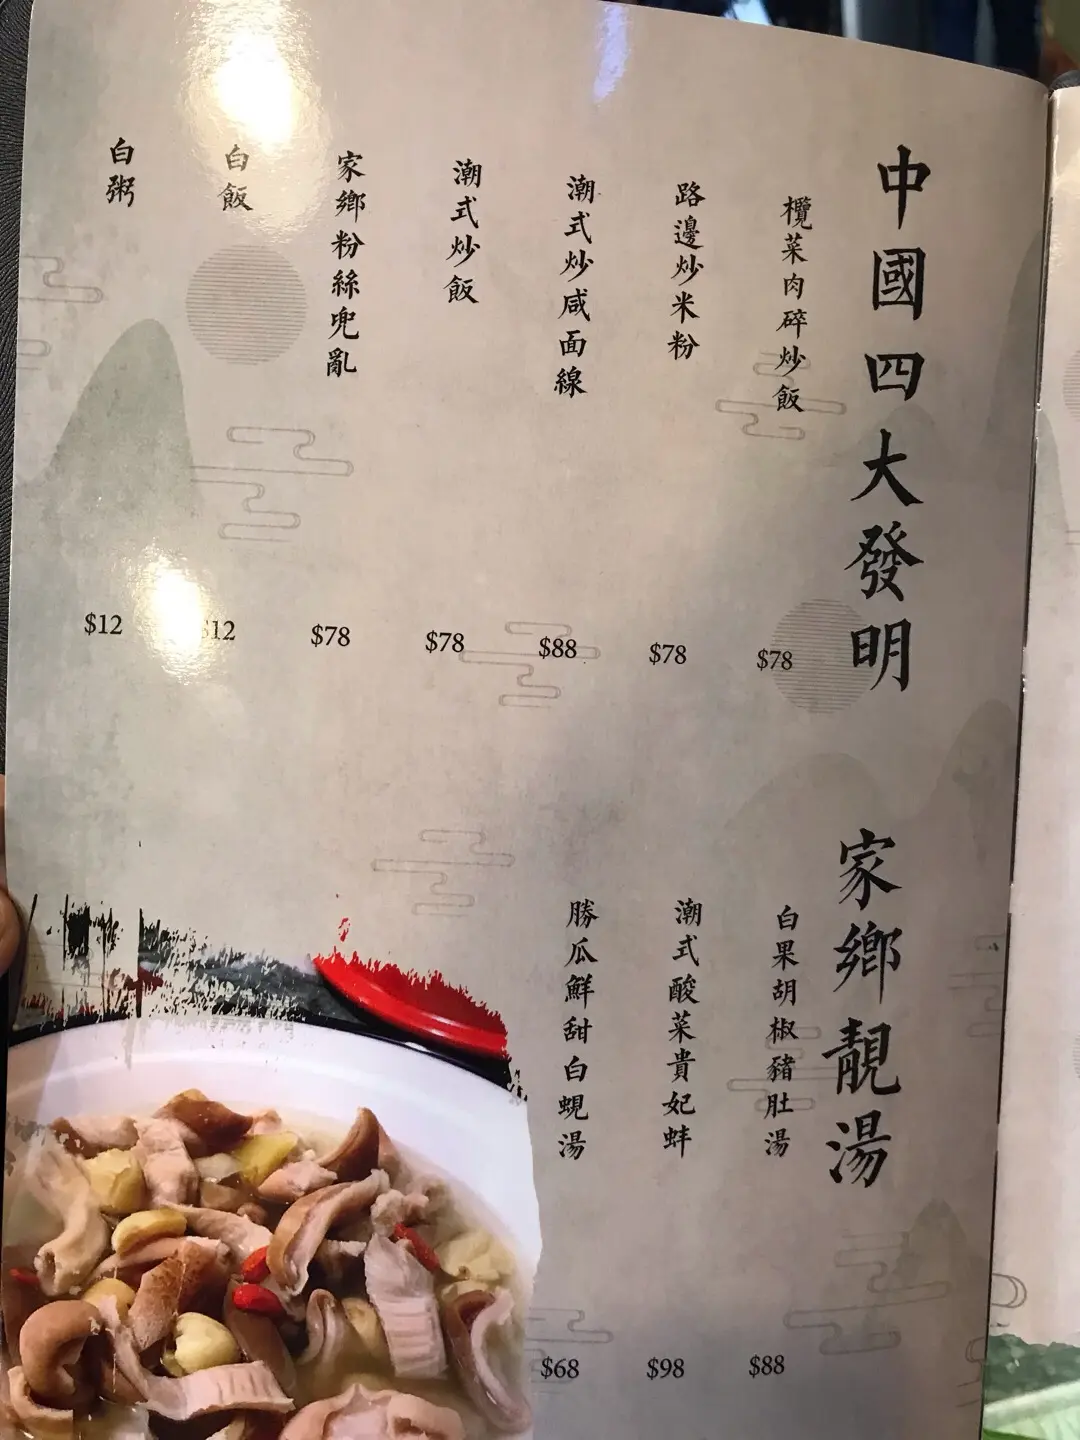 中國四大發明
欖菜肉碎炒飯
$78
路邊炒米粉
$78
潮式炒咸面線
$88
潮式炒飯
$78
家鄉粉絲兜亂
$78
白飯
$12
白粥
$12
家鄉靚湯
白果胡椒豬肚湯
$88
潮式酸菜貴妃蚌
$98
勝瓜鮮甜白蜆湯
$68